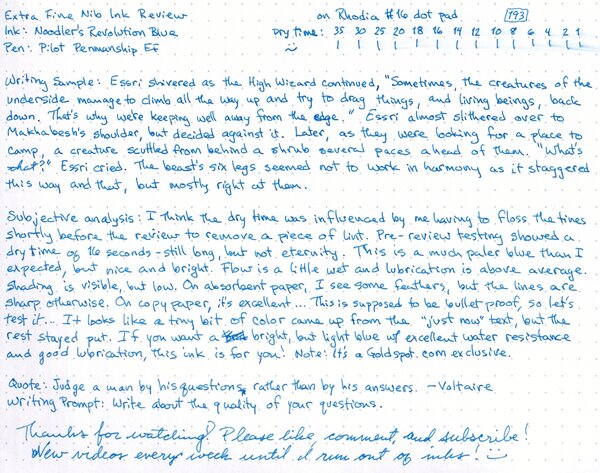 Extra Fine Nib Ink Review on Rhodia #16 dot pad 193
Ink: Noodler's Revolution Blue Dry time: 35 30 25 20 18 16 14 12 10 8 6 4 2 1
Pen: Pilot Penmanship EF
Writing Sample: Essri shivered as the High Wizard continued, "Sometimes, the creatures of the
underside manage to climb all the way up and try to drag things, and living beings, back
down. That's why we're keeping well away from the edge." Essri almost slithered over to
Makhabesh's shoulder, but decided against it. Later, as they were looking for a place to
camp, a creature scuttled from behind a shrub several paces ahead of them. "What's
that?" Essri cried. The beast's six legs seemed not to work in harmony as it staggered
this way and that, but mostly right at them.
Subjective analysis: I think the dry time was influenced by me having to floss the tines
shortly before the review to remove a piece of lint. Pre-review testing showed a
dry time of 16 seconds - still long, but not eternity. This is a much paler blue than I
expected, but nice and bright. Flow is a little wet and lubrication is above average.
Shading is visible, but low. On absorbent paper, I see some feathers, but the lines are
sharp otherwise. On copy paper, it's excellent... This is supposed to be bulletproof, so let's
test it... It looks like a tiny bit of color came up from the "just now" text, but the
rest stayed put. If you want a bright, but light blue w/ excellent water resistance
and good lubrication, this ink is for you! Note: It's a Goldspot.com exclusive.
Quote: Judge a man by his questions rather than by his answers. -Voltaire
Writing Prompt: Write about the quality of your questions.
Thanks for watching! Please like, comment, and subscribe!
New videos every week until I run out of inks!